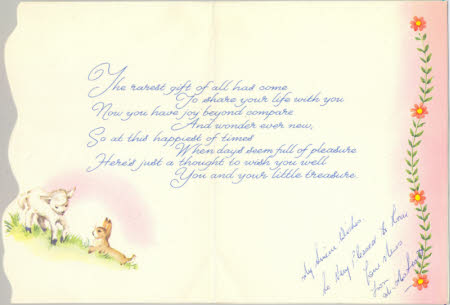 The rarest gift of all has come
To share your life with you
Now you have joy beyond compare
And wonder ever new,
So at this happiest of times
When days seem full of pleasure
Here's just a thought to wish you well
You and your little treasure.
My Sincere Wishes.
So Very Pleased to
from